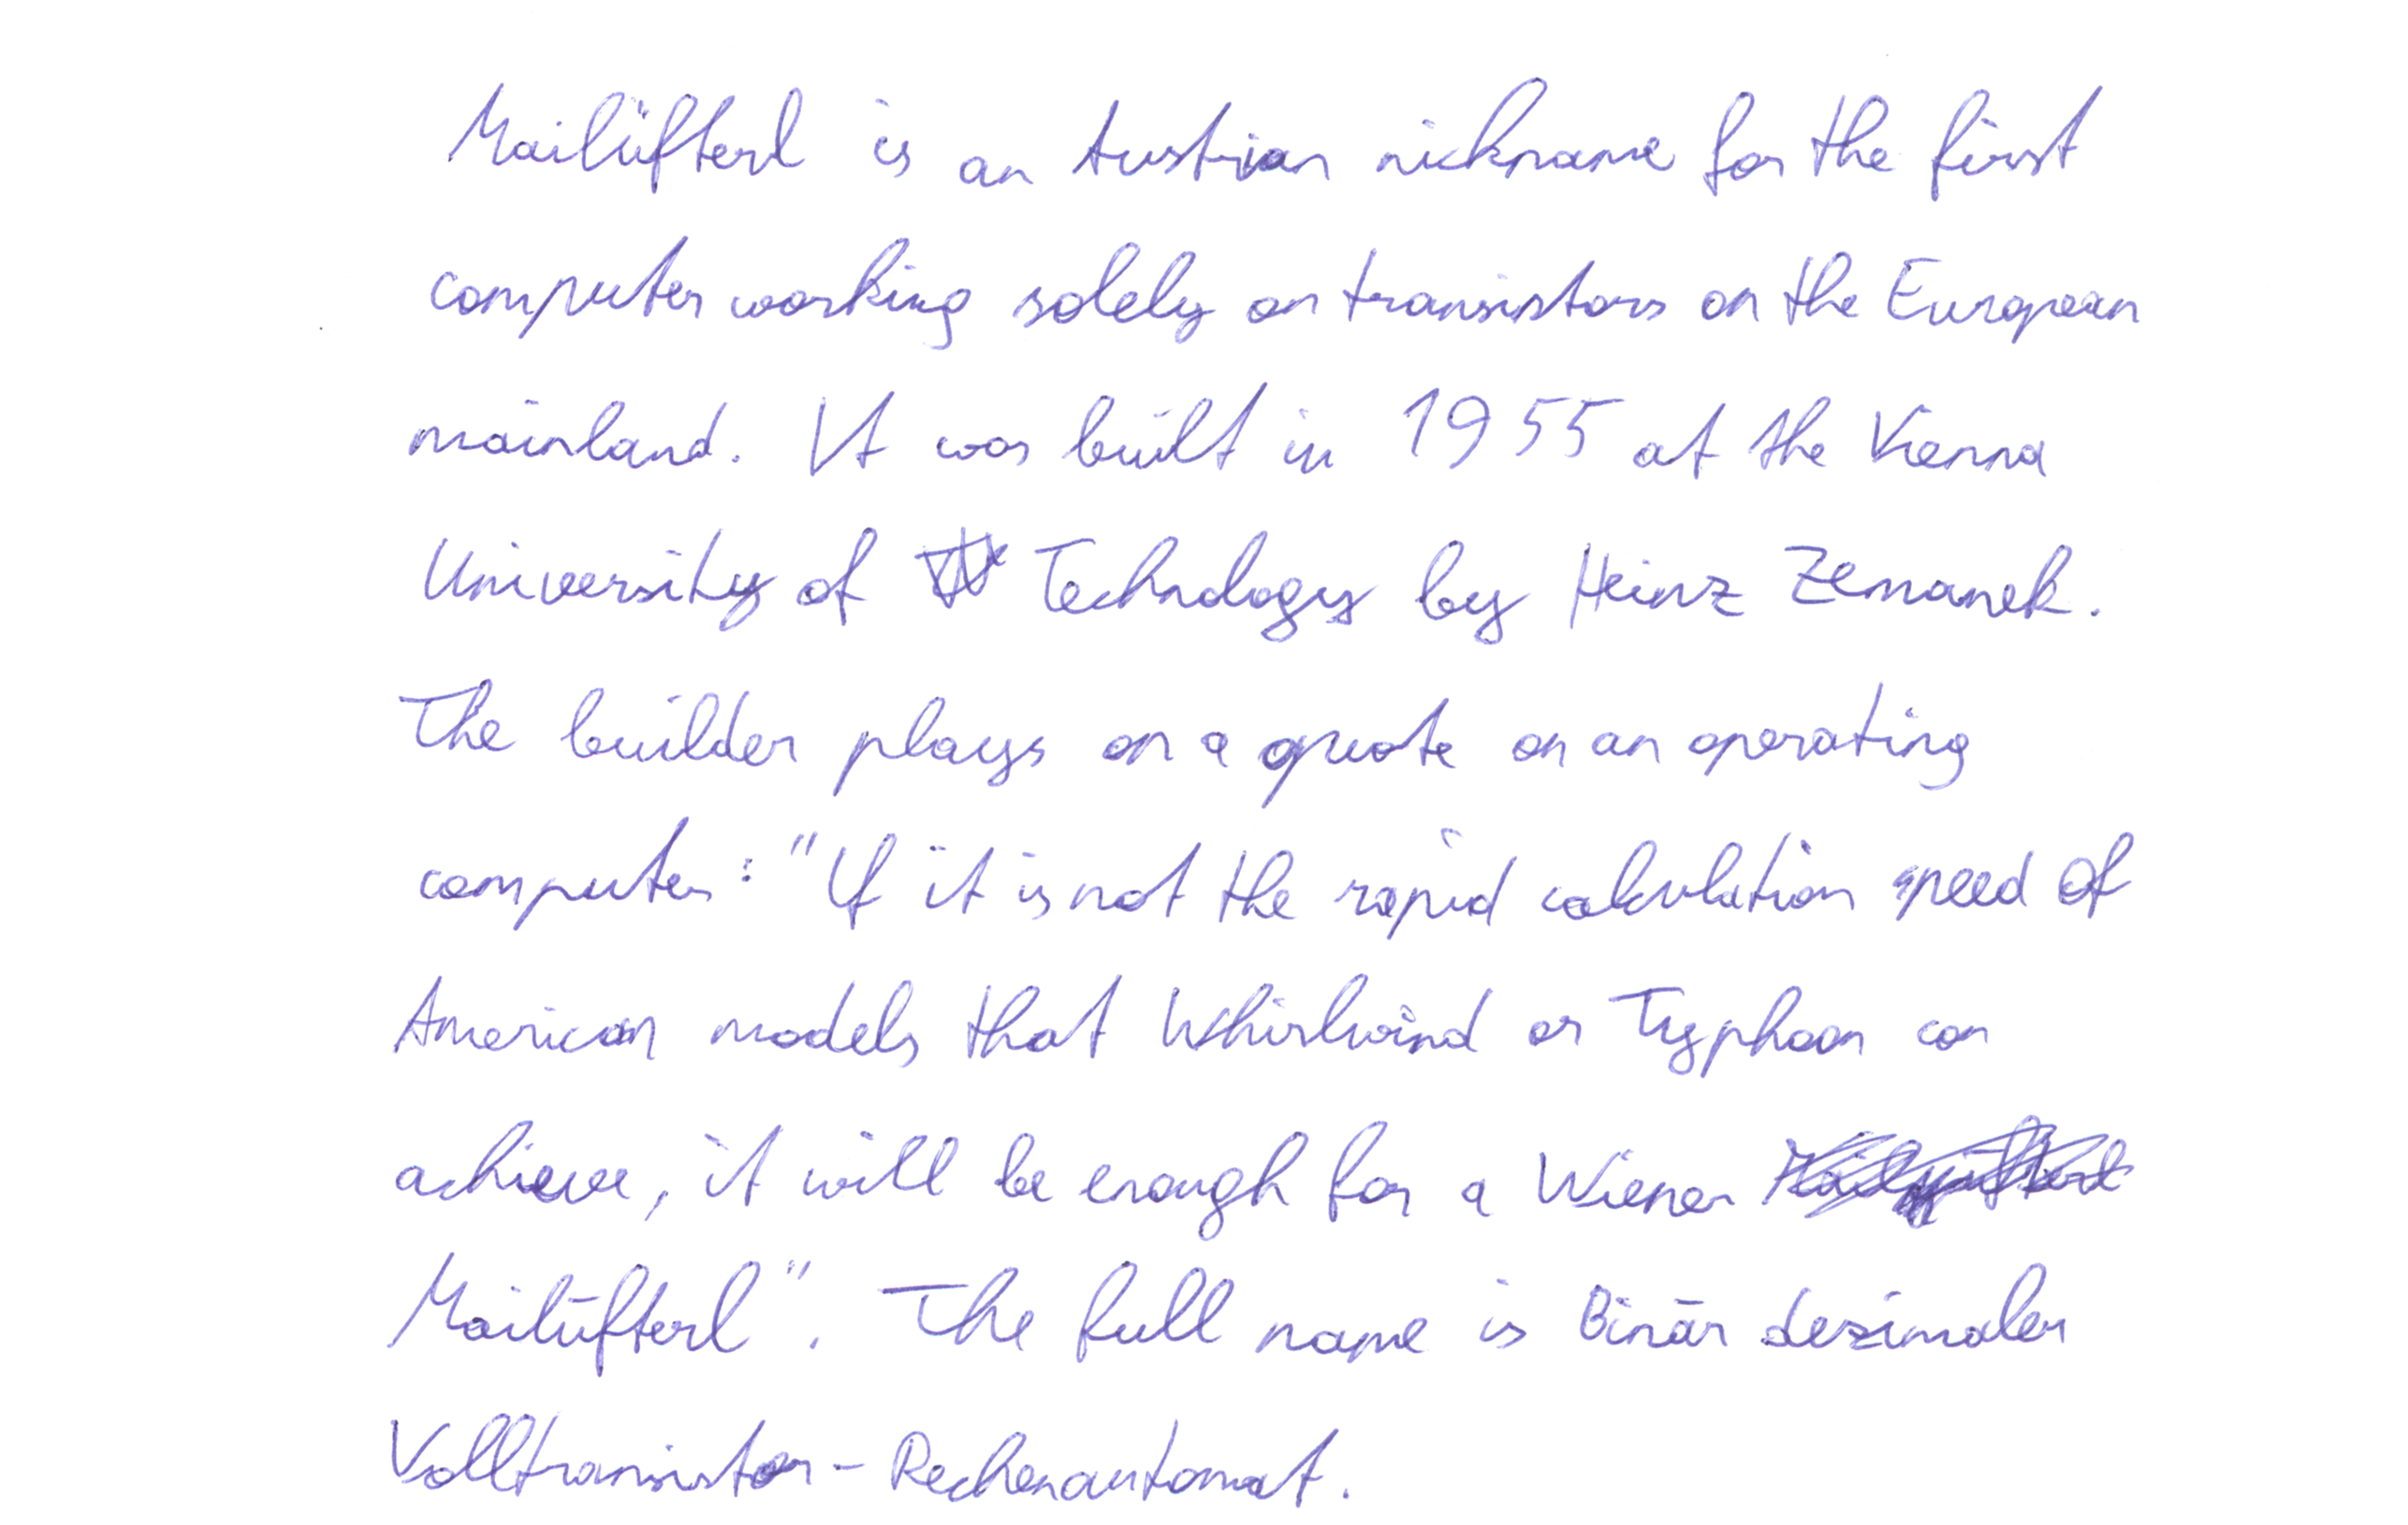 Mailüfterl is an Austrian nickname for the first
computer working solely on transistors on the European
mainland. It was built in 1955 at the Vienna
University of Technology by Heinz Zemanek.
The builder plays on a quote on an operating
computer: "If it is not the rapid calculation speed of
American models that Whirlwind or Typhoon can
achieve, it will be enough for a Wiener
Mailüfterl". The full name is Binär dezimaler
Volltransistor-Rechenautomat.